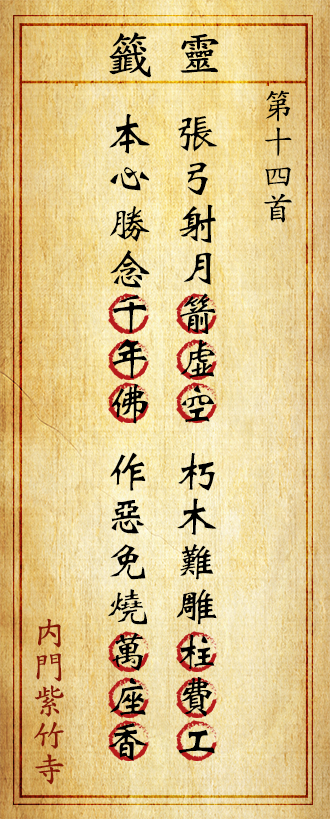 靈籤
第十四首
張弓射月箭虛空
朽木難雕柱費工
本心勝念千年佛
作惡免燒萬座香
内門紫竹寺